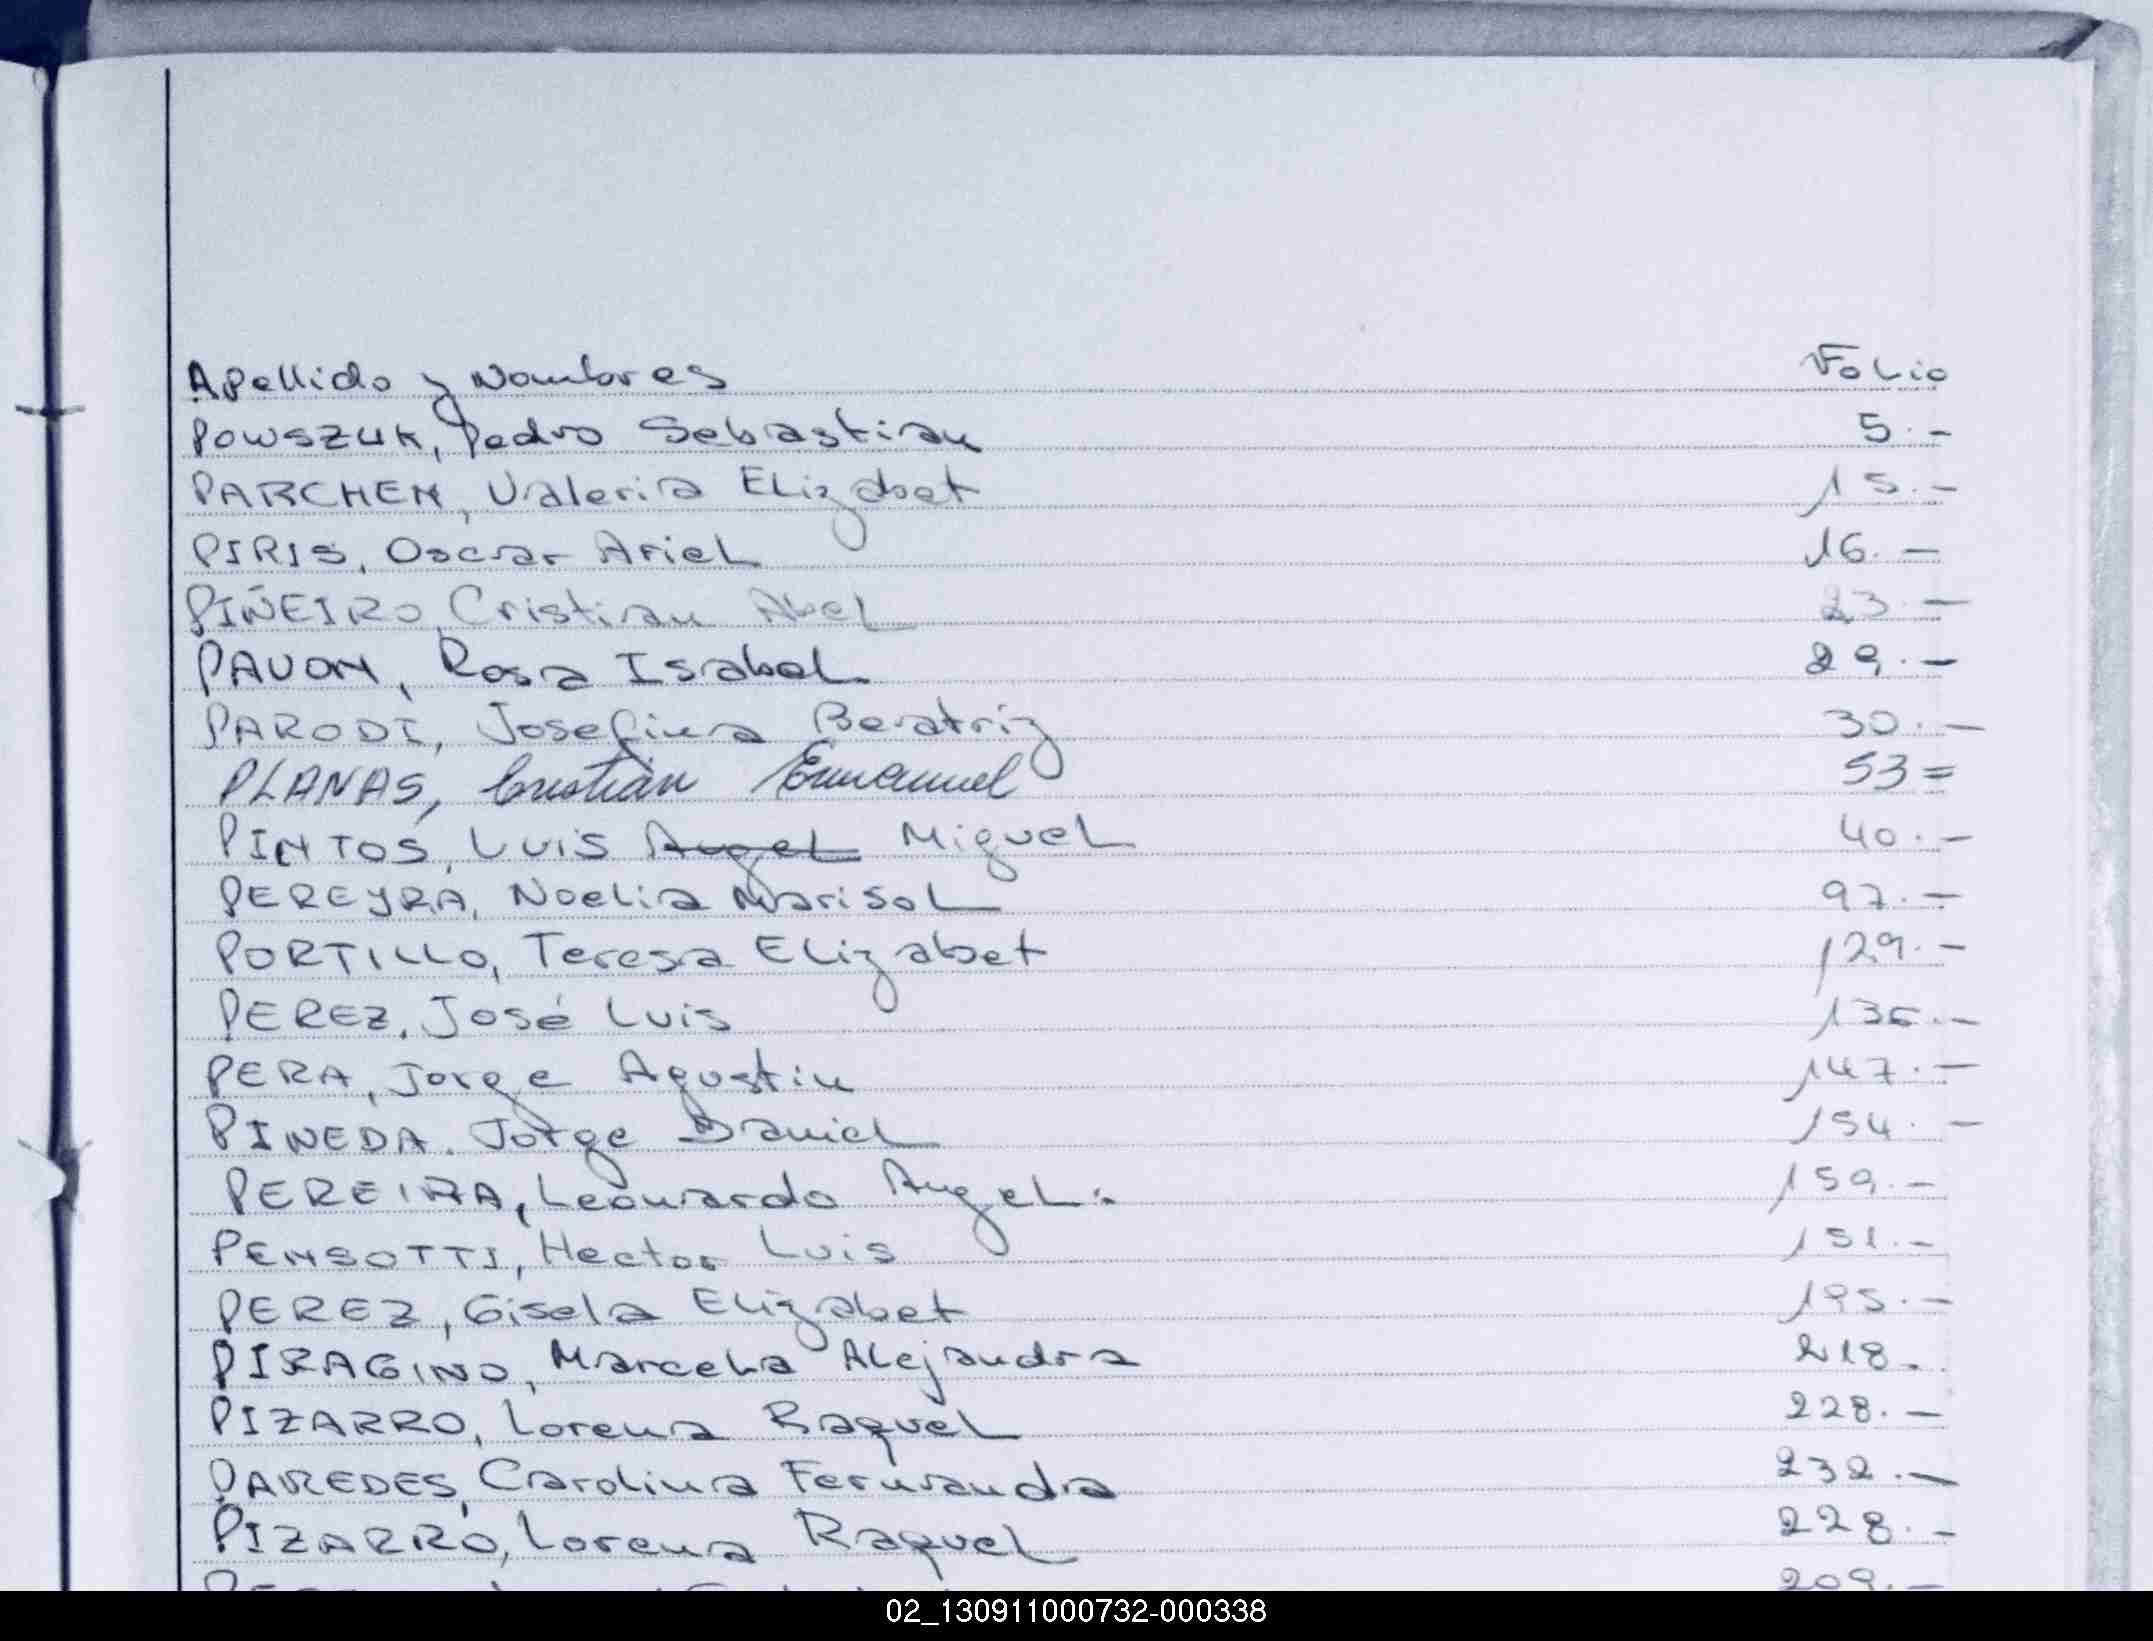 Apellido y Nombres Folio
POWSZUK, Pedro Sebastian 5.-
PARCHEN, Valeria Elizabet 15.-
PIRIS, Oscar Ariel 16.-
PIÑEIRO, Cristian Abel 23.-
PAVON, Rosa Isabel 29.-
PARODI, Josefina Beatriz 30.-
PLANAS, Cristián Emmanuel 53=
PINTOS, Luis Angel Miguel 40.-
PEREYRA, Noelia Marisol 97.-
PORTILLO, Teresa Elizabet 129.-
PEREZ, José Luis 135.-
PERA, Jorge Agustin 147.-
PINEDA. Jorge Daniel 154.-
PEREIRA, Leonardo Angel. 159.-
PENSOTTI, Hector Luis 151.-
PEREZ, Gisela Elizabet 195.-
PIRAGINO, Marcela Alejandra 218.
PIZARRO, Lorena Raquel 228.-
PAREDES, Carolina Fernanda 232.-
PIZARRO, Lorena Raquel 228.-
209.-
02_130911000732-000338